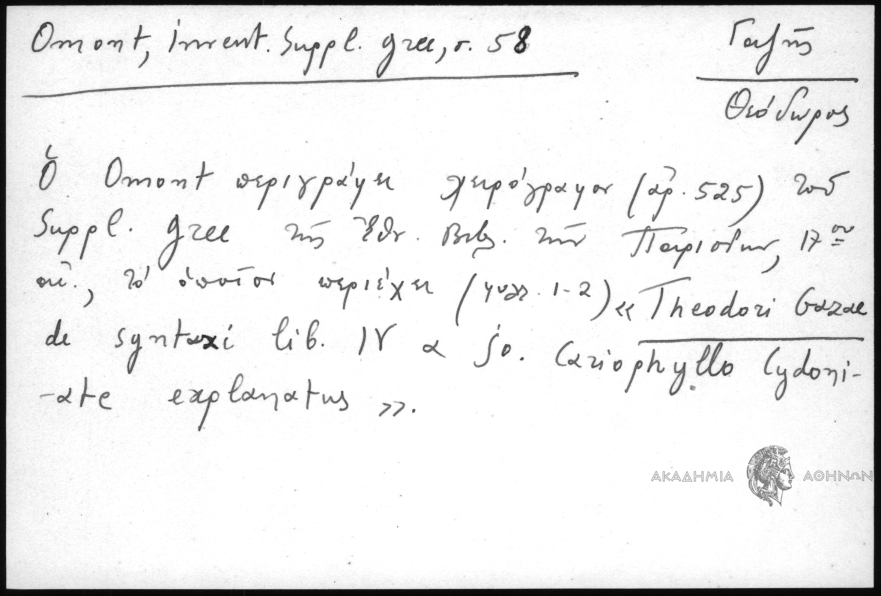 Omont, Invent. Suppl. grec, σ. 58
Γαζῆς
Θεόδωρος
Ὁ Omont περιγράφει χειρόγραφον (ἀρ. 525) τοῦ
Suppl. grec τῆς Ἐθν. Βιβλ. τῶν Παρισίων, 17ου
αἰ., τὸ ὁποῖον περιέχει (φυλλ. 1-2) « Theodori Gazae
de syntaxi lib. IV a Jo. Cariophyllo Cydoni-
-ate explanatus ».
ΑΚΑΔΗΜΙΑ ΑΘΗΝΩΝ